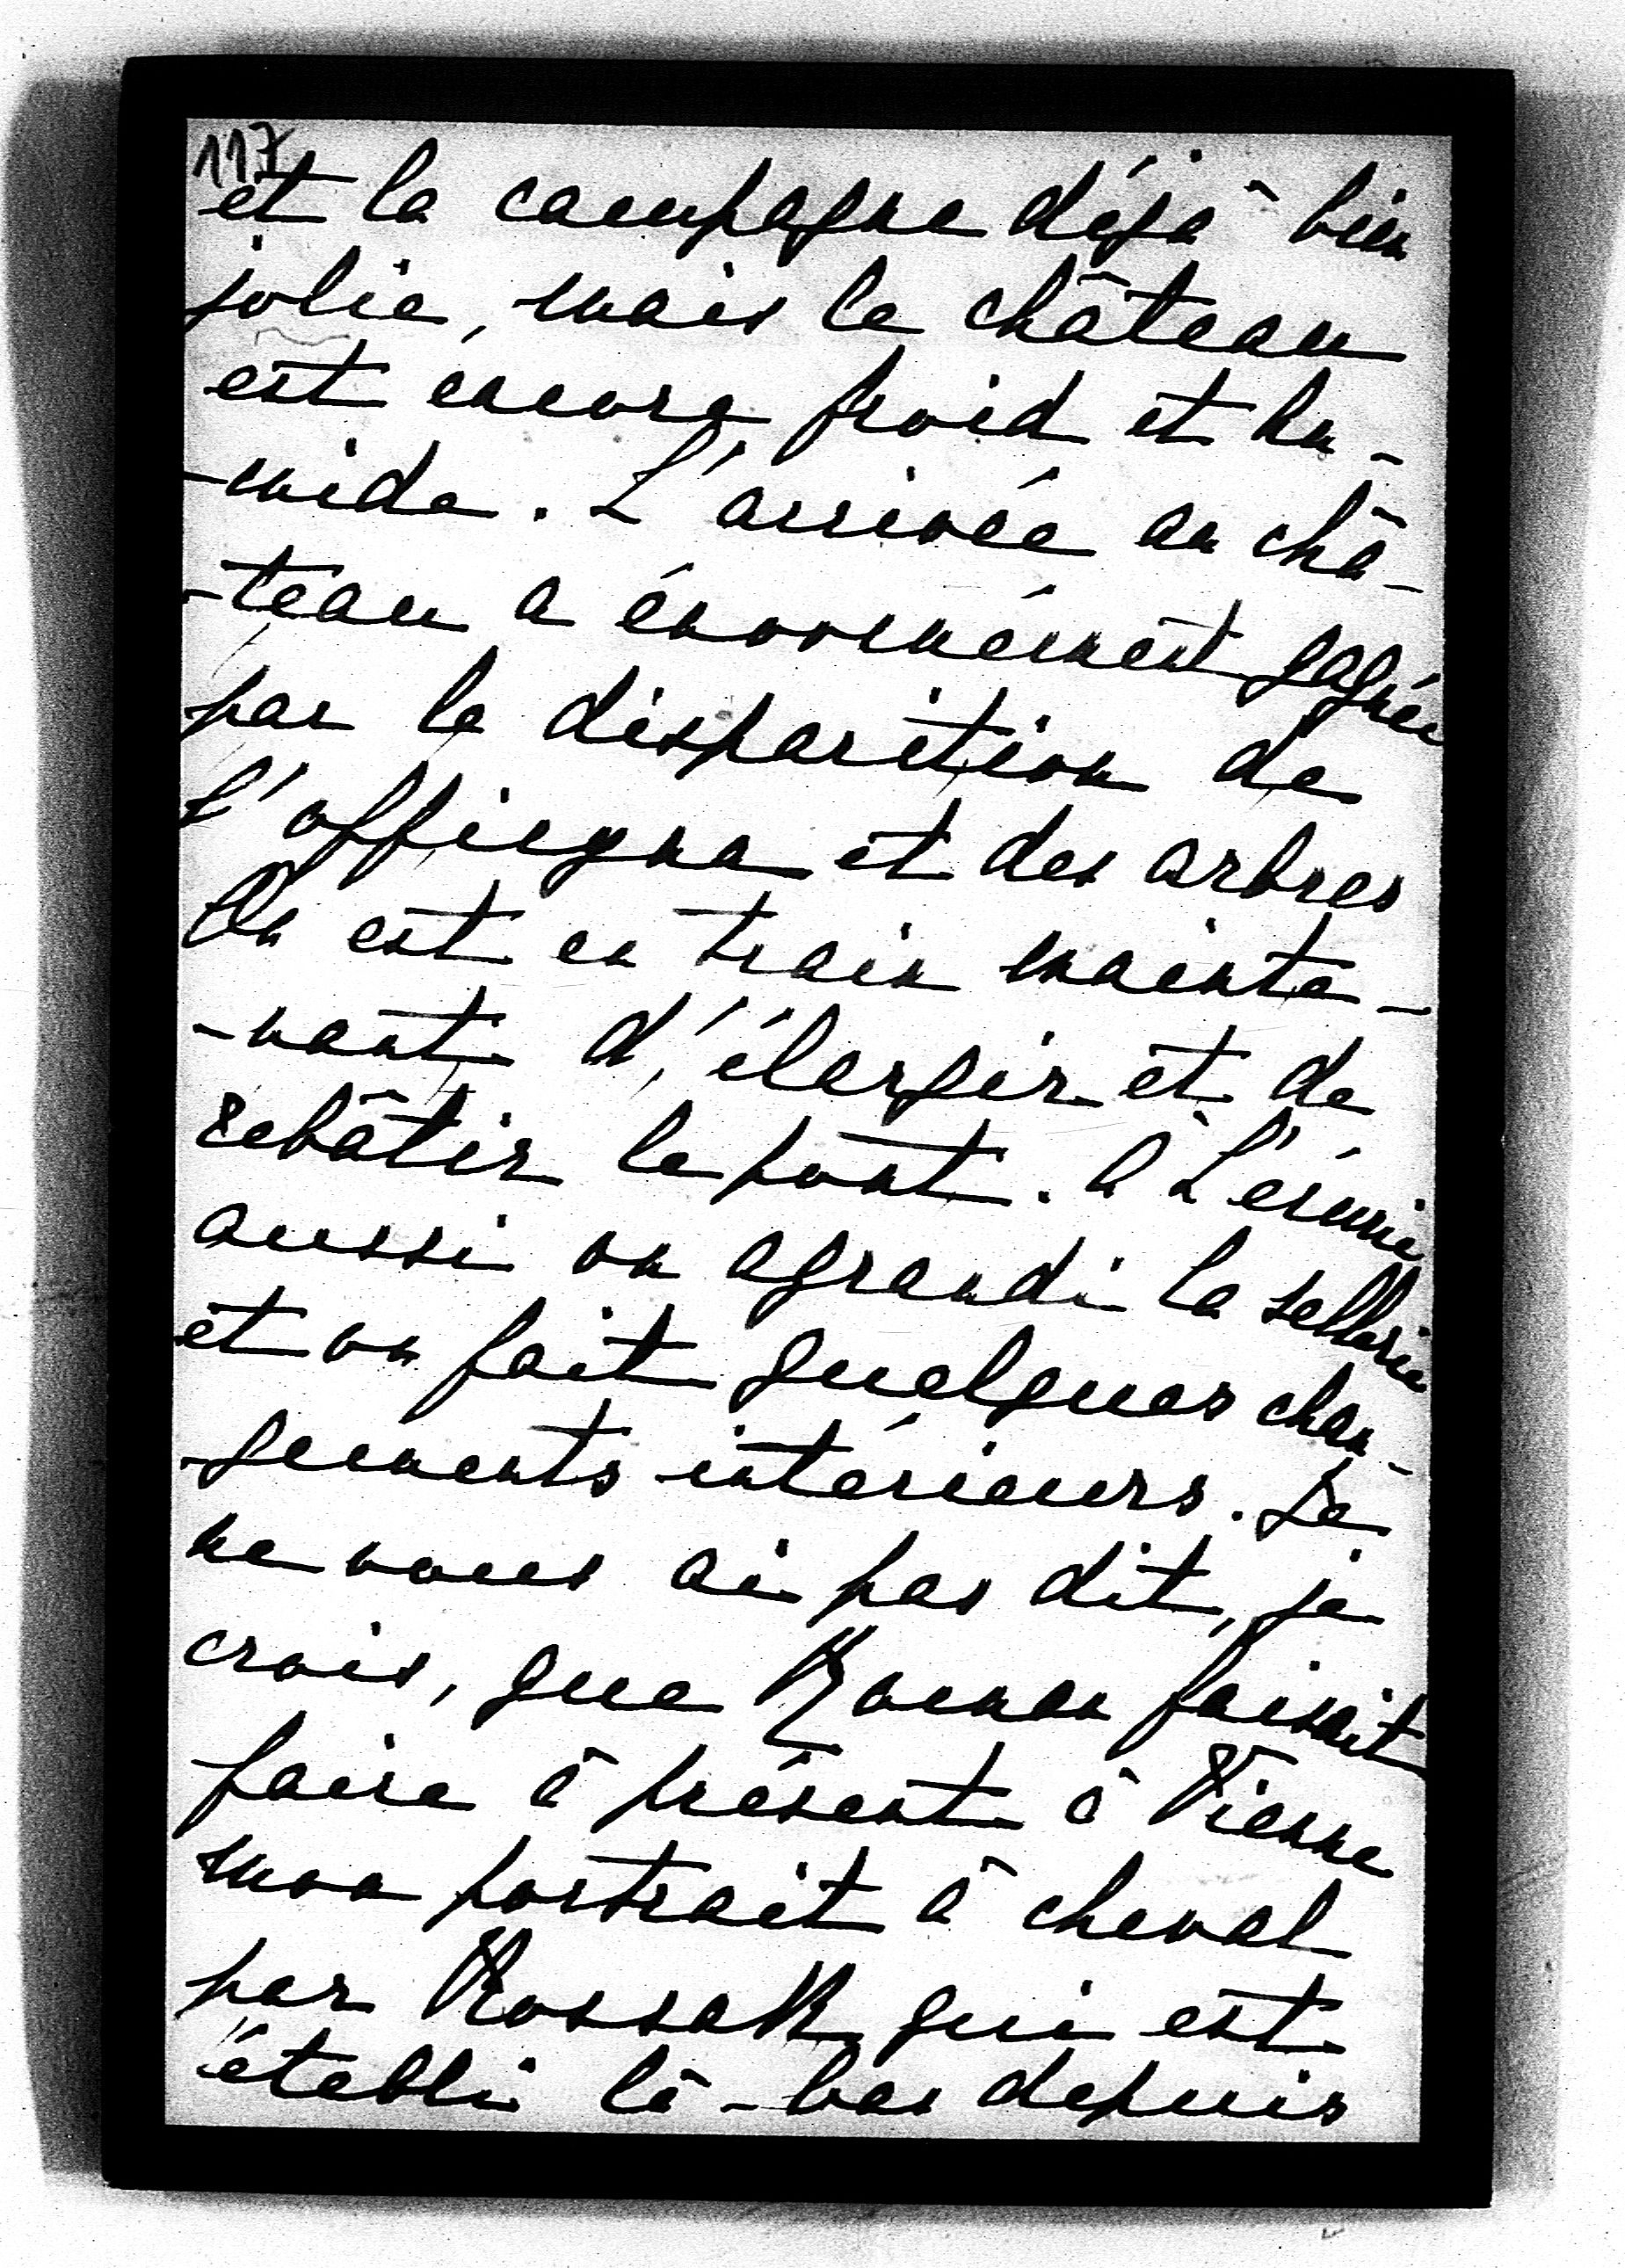 117
et la campagne déjà bien
jolie, mais le château
est encore froid et hu-
-mide. L'arrivée au châ-
-teau a énormément gagnée
par la disparition de
l'officyna et des arbres
On est en train mainte-
-nant d'élargir et de
rebâtir le pont. À L'écurie
aussi on agrandi la sellerie
et on fait quelques chan-
-gements intérieurs. Je
ne vous ai pas dit, je
crois, que Roman faisait
faire à présent à Vienne
mon portrait à cheval
par Kossak qui est
établi là-bas depuis